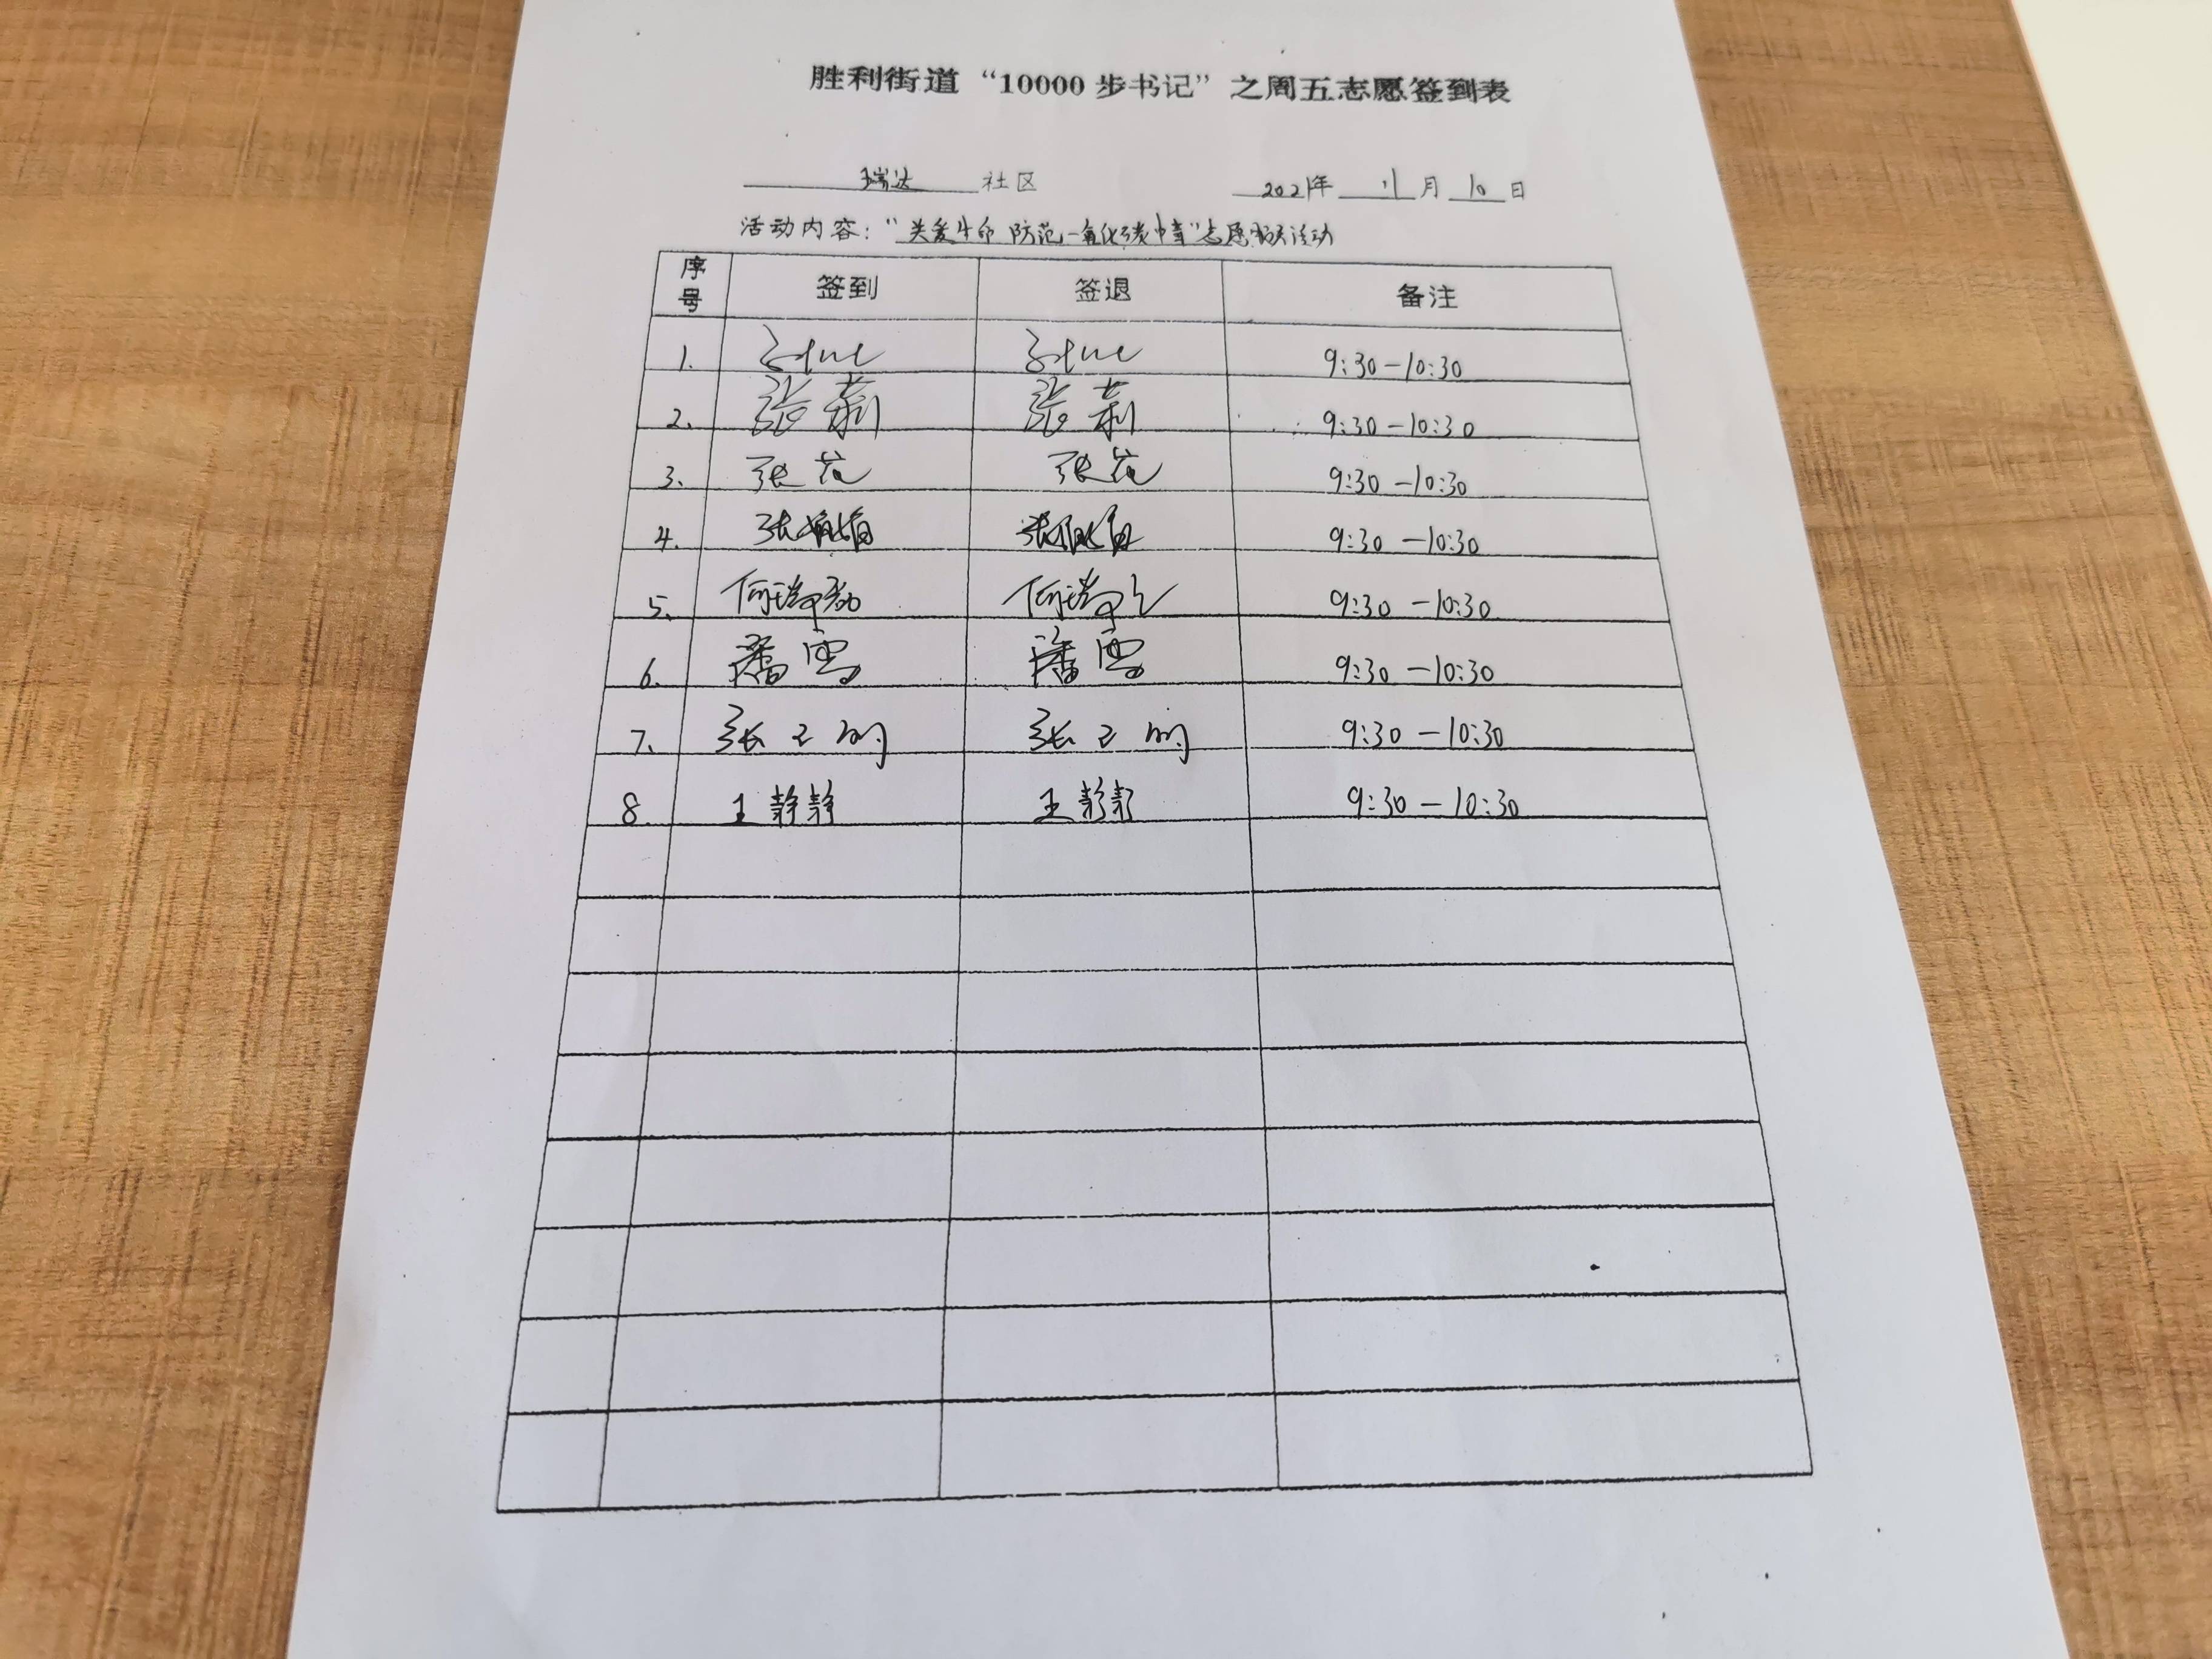 胜利街道“10000步书记”之周五志愿签到表
瑞达 社区 2021年 11月 10日
活动内容：“关爱生命 防范一氧化碳中毒”志愿服务活动
序号 签到 签退 备注
1. 9:30-10:30
2. 张莉 张莉 9:30-10:30
3. 张花 张花 9:30-10:30
4. 张 张 9:30-10:30
5. 何瑞 何瑞 9:30-10:30
6. 潘雪 潘雪 9:30-10:30
7. 张 张 9:30-10:30
8. 王静静 王静静 9:30-10:30